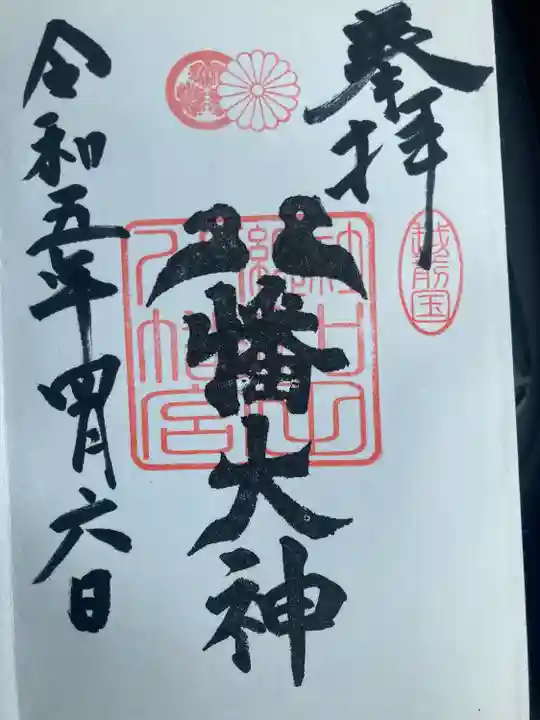 奉拝
越前国
八幡大神
令和五年四月六日